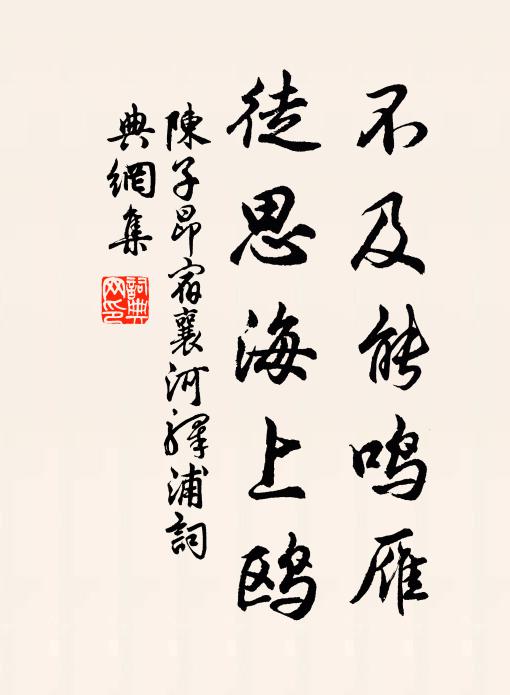 不及能鸣雁
徒思海上鸥
陳子昂宿襄河驛浦詞
典網集
詞典
网印